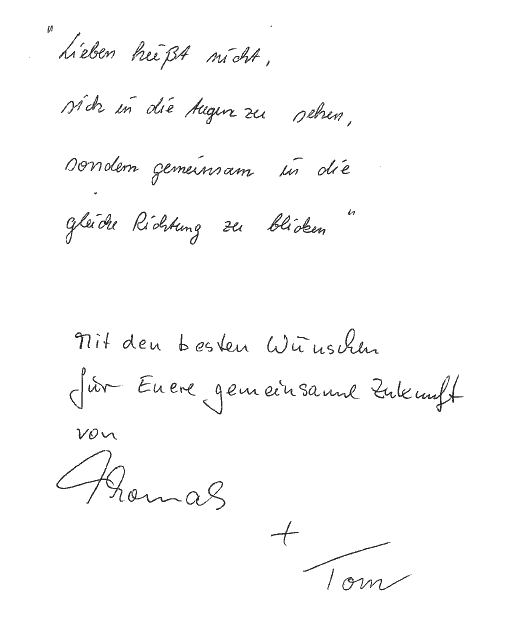 "Lieben heißt nicht,
sich in die Augen zu sehen,
sondern gemeinsam in die
gleiche Richtung zu blicken"
Mit den besten Wünschen
für Euere gemeinsame Zukunft
von
Thomas
+
Tom